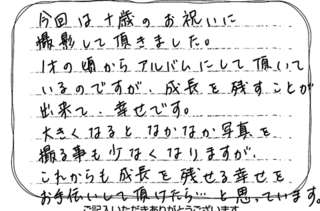 今回は十歳のお祝いに
撮影して頂きました。
1才の頃からアルバムにして頂いて
いるのですが、成長を残すことが
出来て、幸せです。
大きくなるとなかなか写真を
撮る事も少なくなりますが、
これからも成長を残せる幸せを
お手伝いして頂けたら…と思っています。
ご記入いただきありがとうございます